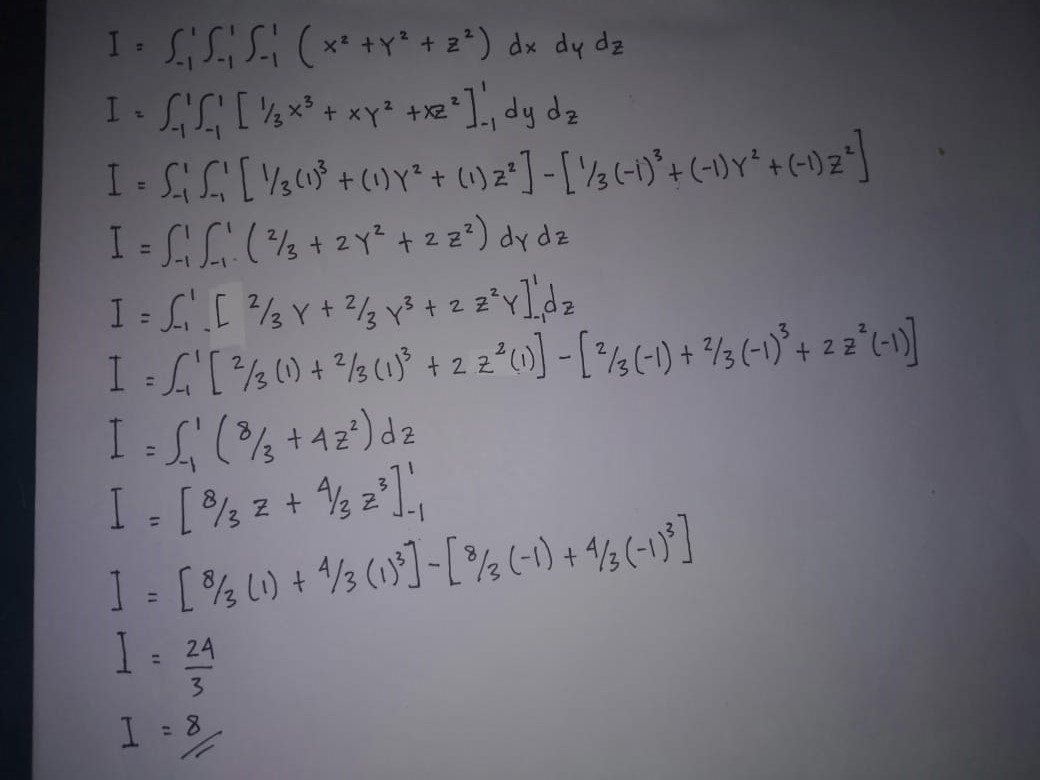 I = ∫₋₁¹ ∫₋₁¹ ∫₋₁¹ ( x² + y² + z² ) dx dy dz
I = ∫₋₁¹ ∫₋₁¹ [ 1/3 x³ + xy² + xz² ]₋₁¹ dy dz
I = ∫₋₁¹ ∫₋₁¹ [ 1/3 (1)³ + (1) y² + (1) z² ] - [ 1/3 (-1)³ + (-1) y² + (-1) z² ]
I = ∫₋₁¹ ∫₋₁¹ ( 2/3 + 2y² + 2z² ) dy dz
I = ∫₋₁¹ [ 2/3 y + 2/3 y³ + 2 z² y ]₋₁¹ dz
I = ∫₋₁¹ [ 2/3 (1) + 2/3 (1)³ + 2 z² (1) ] - [ 2/3 (-1) + 2/3 (-1)³ + 2 z² (-1) ]
I = ∫₋₁¹ ( 8/3 + 4z² ) dz
I = [ 8/3 z + 4/3 z³ ]₋₁¹
I = [ 8/3 (1) + 4/3 (1)³ ] - [ 8/3 (-1) + 4/3 (-1)³ ]
I = 24/3
I = 8